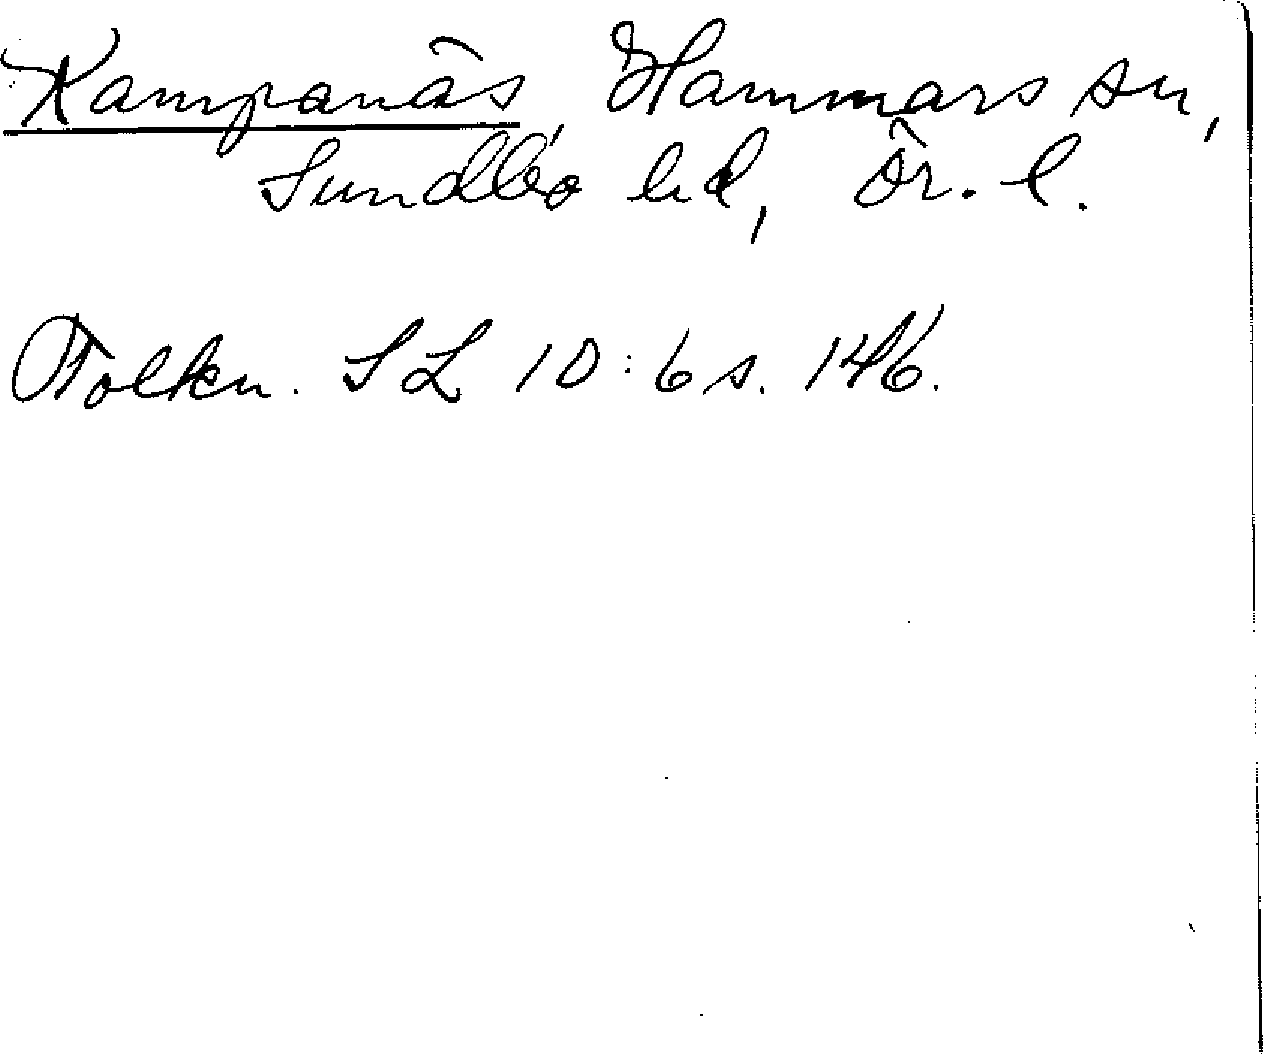 Kampanäs, Hammars sn,
Sundbo hd, Ör. l.
Tolkn. SL 10:6 s. 146.